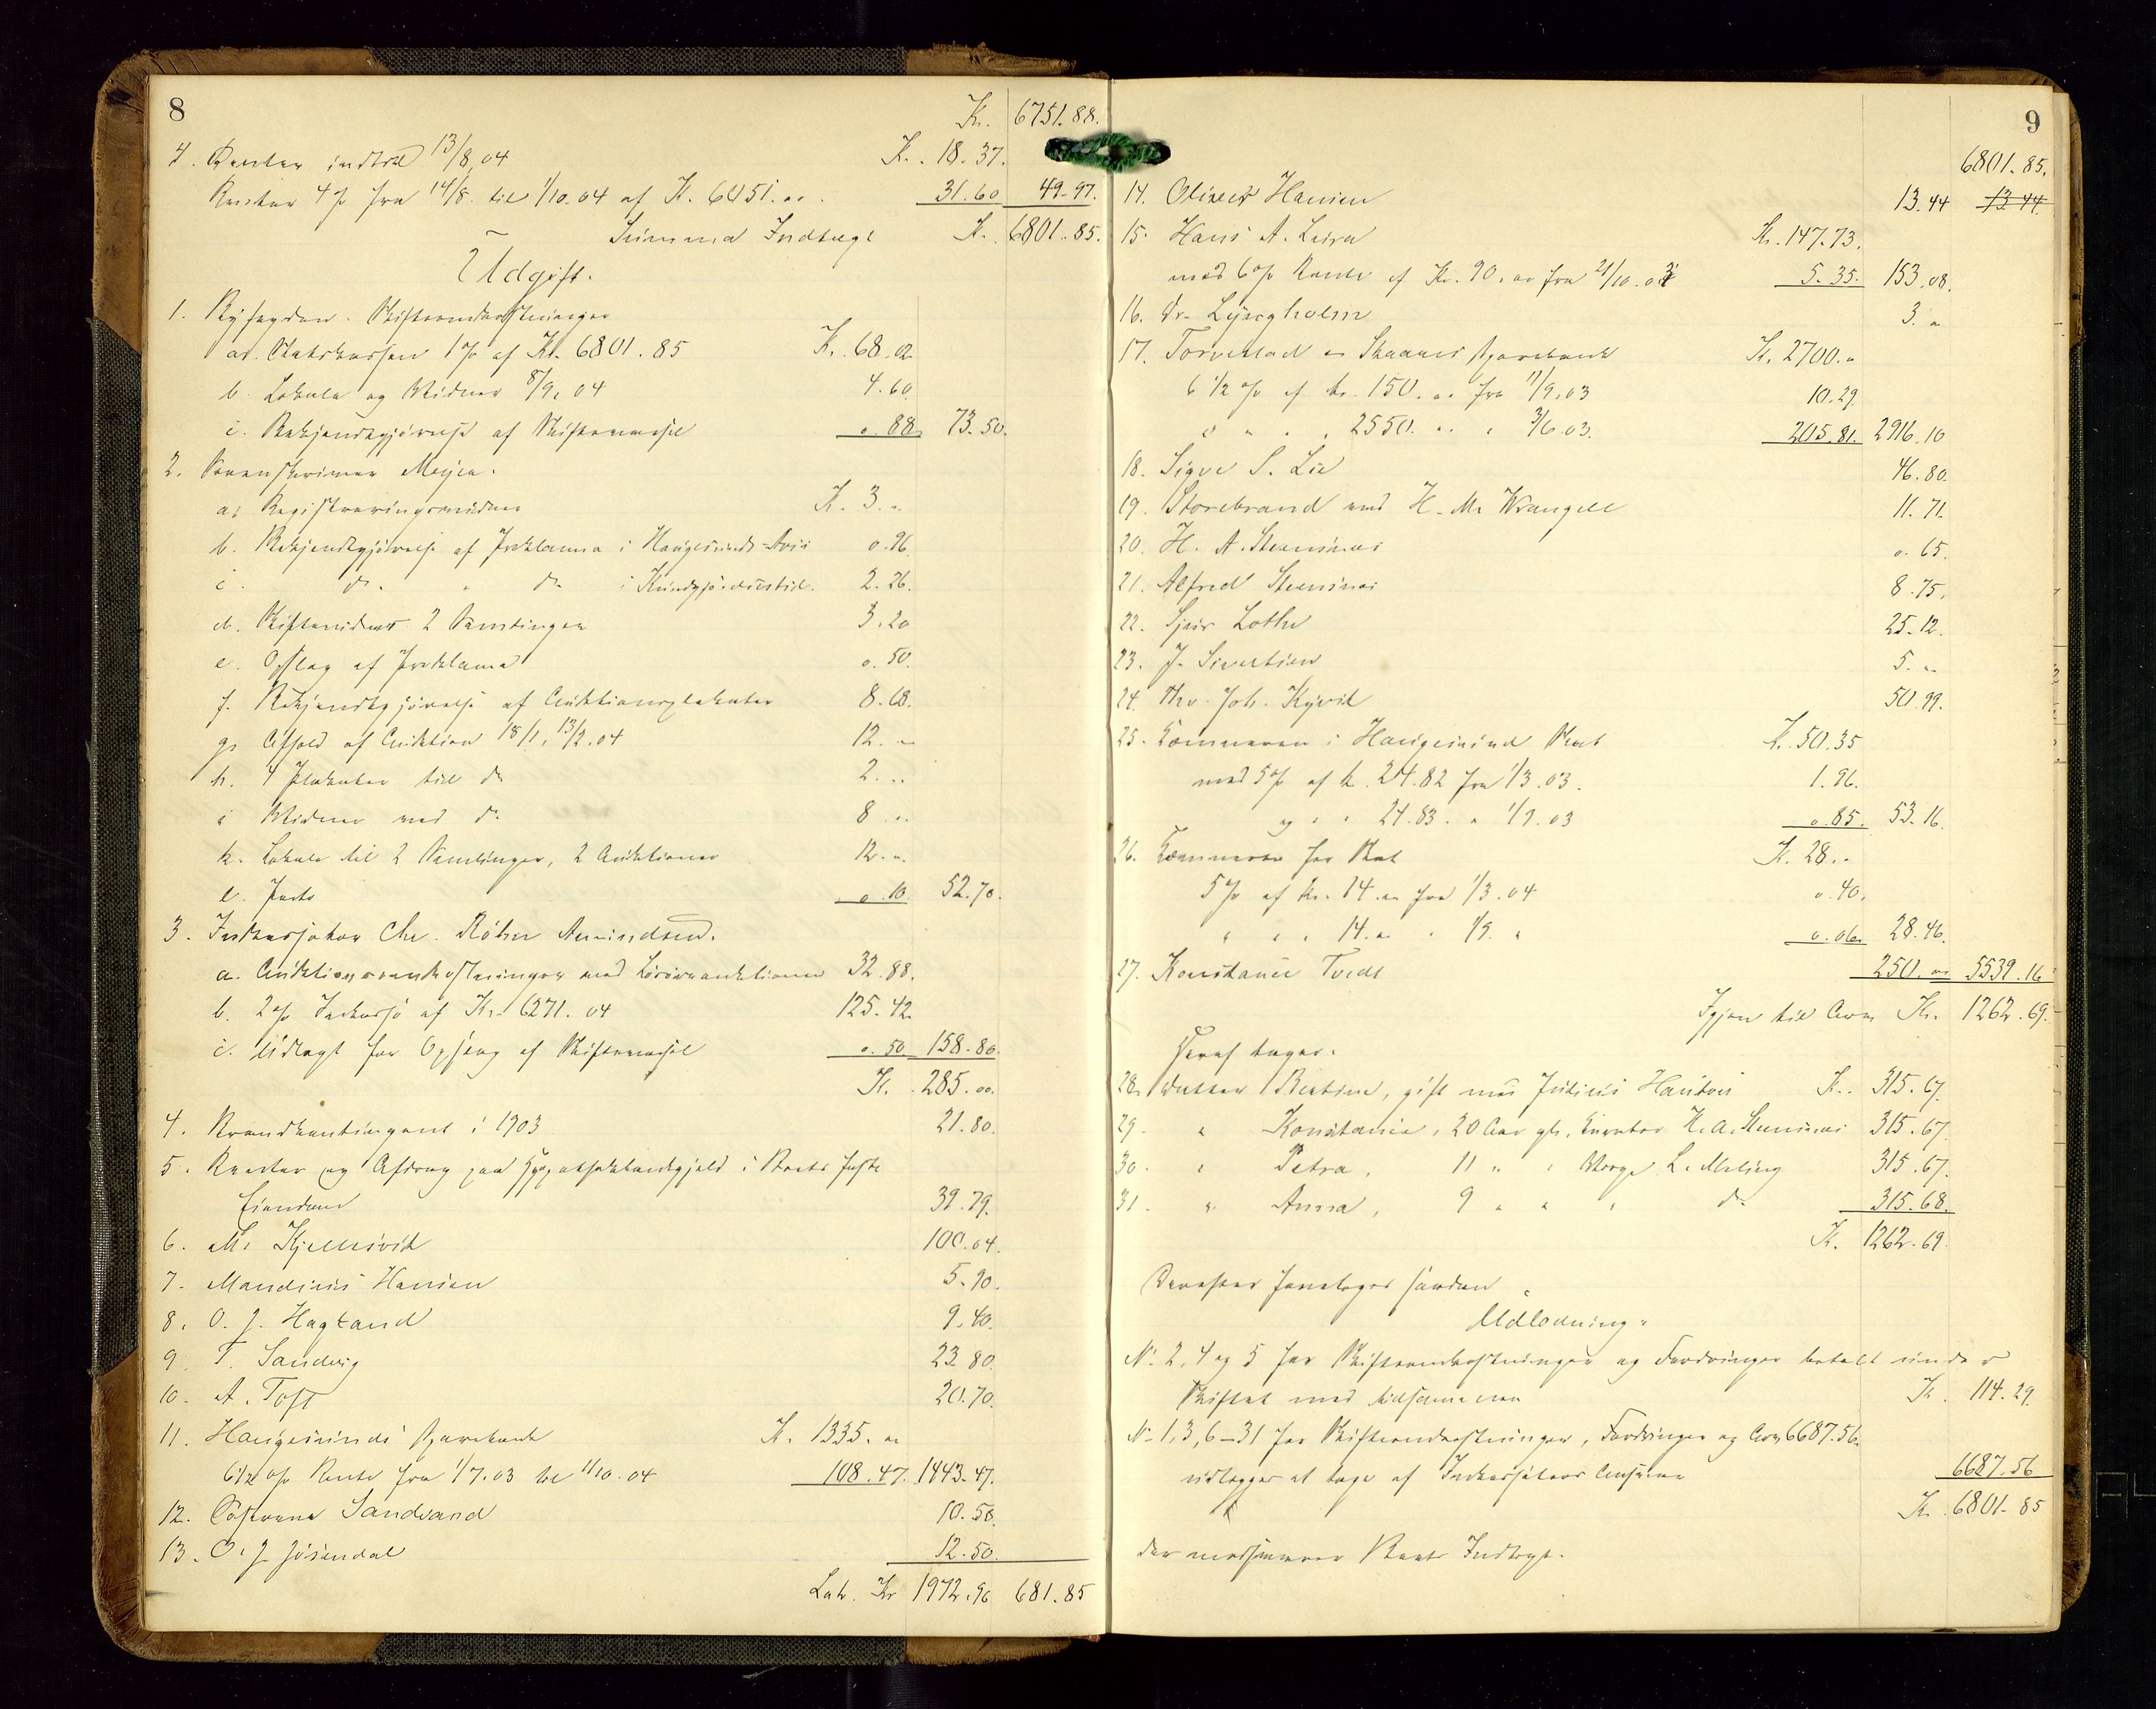 8
Kr. 6751.88.
4. Renter indtil 13/8 04 K. 18.37.
Renter 4 % fra 14/8 til 1/10.04 af K. 6051. 31.60 49.97.
Summa Indtægt K. 6801.85.
Udgift.
1. Byfogden. Skifteomkostninger
a. Statskassen 1 % af Kr. 6801.85 Kr. 68.02
b. Lokale og Vidner 8/9. 04 4.60.
c. Bekjendtgjørelse af Skiftesamling 0.88 73.50.
2. Meyer.
a. Registreringsvidner K. 3.
b. Bekjendtgjørelse af Proklama i Haugesunds-Avis 0.96.
c. do. " do i Kundgjørelsestid. 2.26.
d. Skiftevidner 2 Samlinger 3.20
e. Opslag af Proklama 0.50.
f. Bekjendtgjørelse af Auktionsplakater 8.68.
g. Afhold af Auktion 18/1, 13/2.04 12.
h. 4 Plakater til do 2.
i Vidner ved do 8
k. Lokale til 2 Samlinger, 2 Auktioner 12.
l. Porto 0.10 52.70.
3. Inkassator Chr. Røhne Amundsen.
a. Auktionsomkostninger ved Løsøreauktionen 32.88.
b. 2 % Inkasso af Kr. 6271.04 125.42
c. Udlagt for Opslag af 0.50 158.80.
K. 285.00.
4. Brandkontingent i 1903 21.80.
5. Renter og Afdrag paa Hypothekbankgjeld i Boets faste
Eiendom 39.79.
6. M. Kjellesvik 100.04.
7. Mandius Hansen 5.90.
8. O. J. Hagland 9.40.
9. T. Sandvig 23.80.
10. A. Toft 20.70.
11. Haugesunds Sparebank K. 1335.
6 1/2 % Rente fra 1/7.03 til 1/10.04 108.47. 1443.47.
12. Sandsand 10.50.
13. O. J Jøsendal 12.50.
Lat. Kr 1972.90 681.85
9
6801.85.
14. Oliver Hansen 13.44 13.44
15. Hans A. Leira Kr. 147.73.
med 6 % Rente af Kr. 90. fra 21/10.03 5.35. 153.08.
16. Dr. Ljungholm 3.
17. Torvestad & Skaares Sparebank K. 2700.
6 1/2 % af Kr. 150. fra 11/9.03 10.29
" " " 2550. " 3/6.03. 205.81. 2916.10
18. Sigve S. Lie 46.80.
19. Storebrand ved H. M. Wrangell 11.71.
20. H. A. Stensnæs 0.65.
21. Alfred Stensnæs 8.75.
22. Sjur Lothe 25.12.
23. J. Sivertsen 5.
24. Joh. Kyvik 50.99.
25. Kæmneren i Haugesund Skat K. 50.35
med 5 % af K. 24.82 fra 1/3.03. 1.96.
og " " 24.83. " 1/9.03 0.85. 53.16.
26. Kæmneren for Skat K. 28.
5 % af Kr. 14. fra 1/3.04 0.40.
" " " 14. " 1/9. " 0.06. 28.46.
27. Konstanse Tvedt 250. 5539.16
Igjen til Arv Kr. 1262.69.
Deraf tager.
28. Datter Bertine, gift med Julius Hanson K. 315.67.
29. " Konstance, 20 Aar gl. Kurator H. A. Stensnæs 315.67.
30. " Petra, 11 " " Verge L. Meling 315.67.
31. " Anna, 9 " " " do 315.68.
K. 1262.69.
Derefter foretoges saadan
Udlodning.
No 2, 4 og 5 for Skifteomkostninger og Fordringer betalt under
Skiftet med tilsammen Kr. 114.29.
No 1, 3, 6-31 for Skifteomkostninger, Fordringer og Arv 6687.56
udlægges at tage af Inkassators 6687.56
Kr. 6801.85
der modsvarer Boets Indtægt.